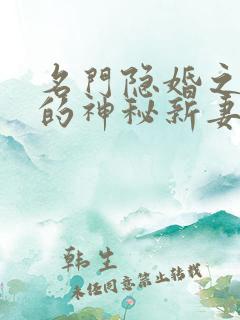 名門隐婚之
的神秘新妻
韩生
未经同意禁止转载